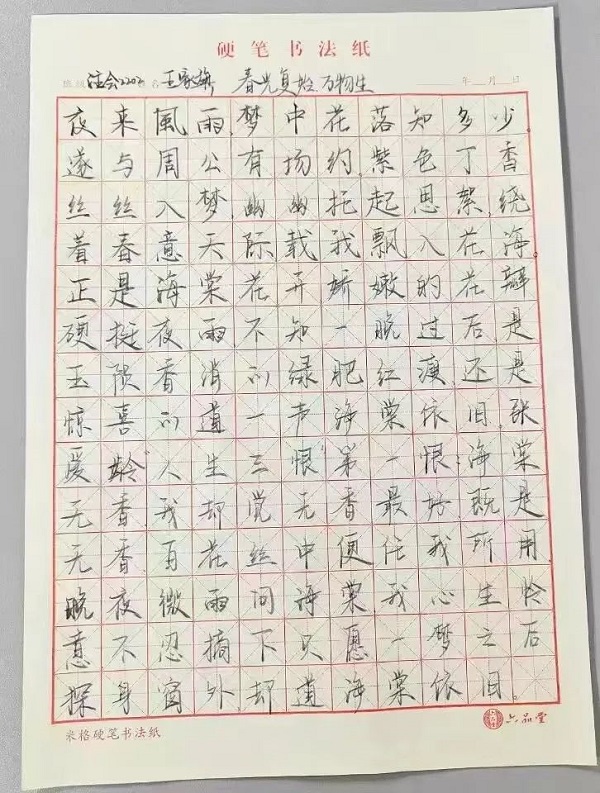 硬笔书法纸
班级 注会2202 名 王家旗 春光复始万物生 年 月 日
夜来風雨,梦中花落知多少。
遂与周公有场约,紫色丁香
丝丝入梦,幽幽托起思絮,绕
着春意天际载我飘入花海。
正是海棠花开,娇嫩的花瓣
硬挺夜雨,不知一晚过后是
玉陨香消的绿肥红瘦,还是
惊喜的道一声海棠依旧。张
爱龄"人生三恨"第一恨:海棠
无香,我却觉无香最好,既是
无香,百花丝中便任我所用,
晚夜微雨问海棠,我心生怜
意,不忍摘下,只愿一梦之后
探身窗外,却道海棠依旧。
米格硬笔书法纸
六品堂